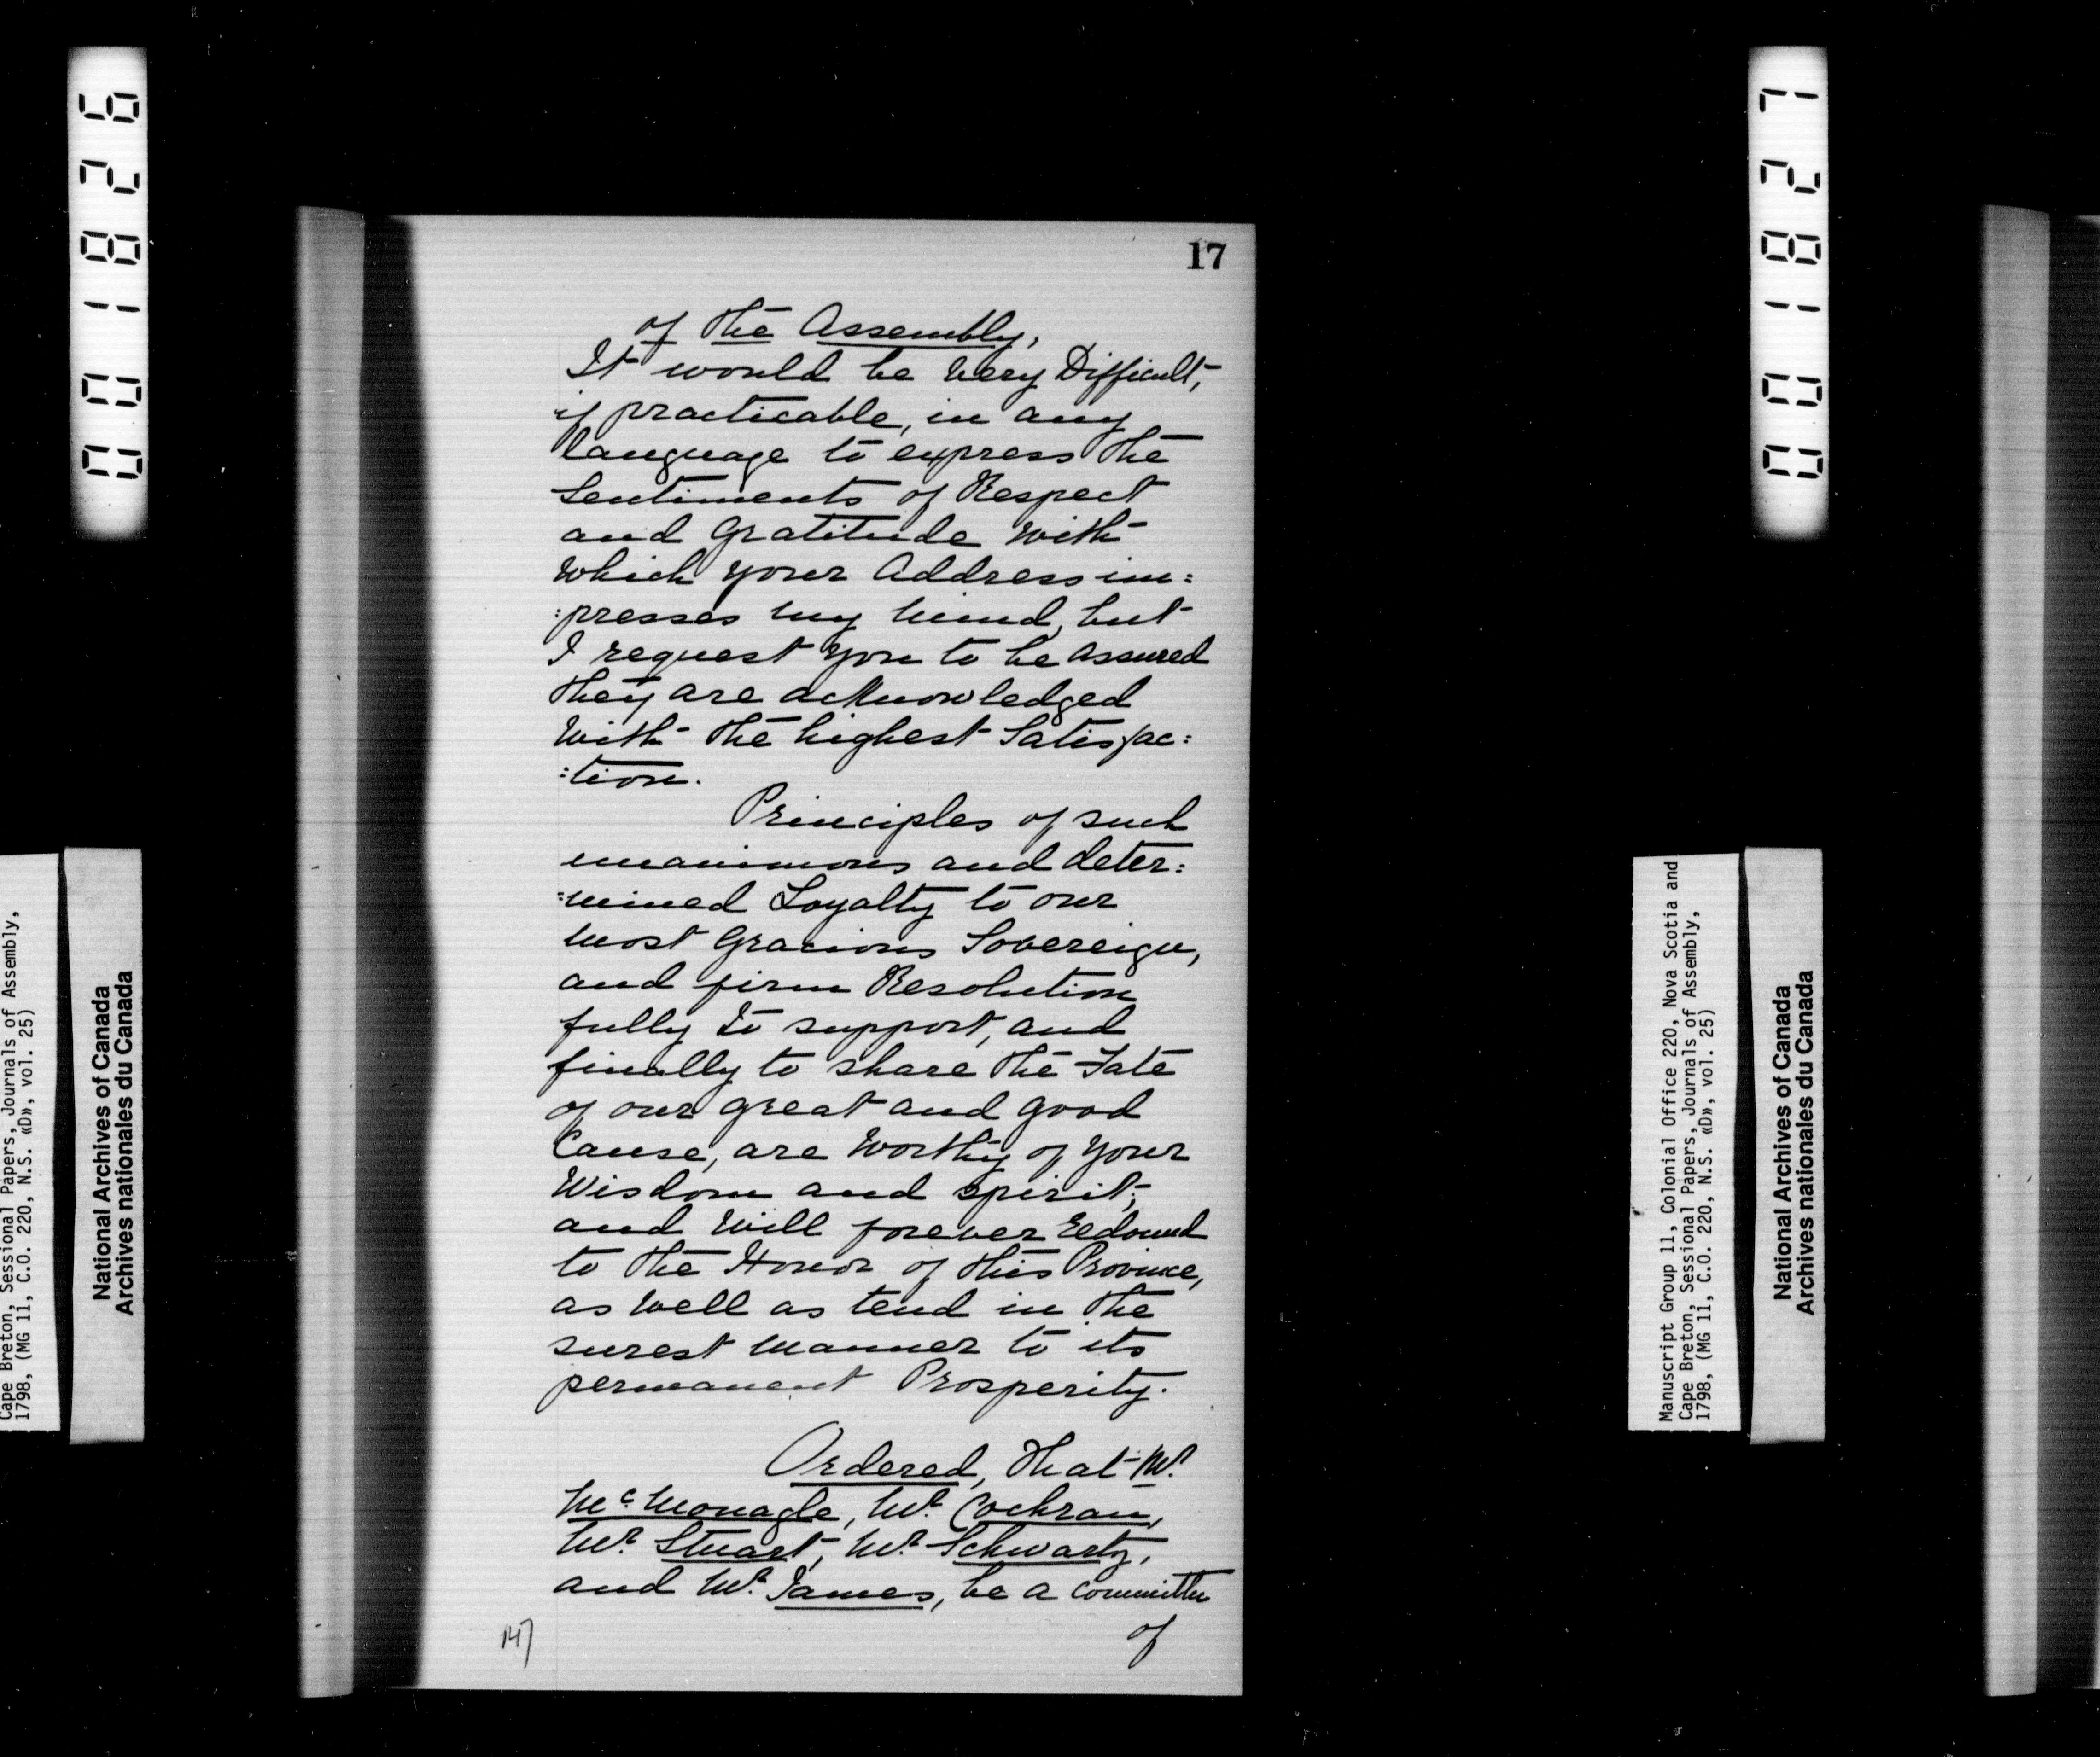 001826
001827
17
of the Assembly,
It would be very Difficult,
if practicable, in any
language to express the
Sentiments of Respect
and Gratitude with
which your Address im:
:presses my mind, but
I request you to be assured
they are acknowledged
with the highest Satisfac:
:tion.
Principles of such
unanimous and deter:
:mined Loyalty to our
most Gracious Sovereign,
and firm Resolution
fully to support, and
finally to share the Fate
of our great and good
Cause, are worthy of your
Wisdom and spirit;
and will forever redound
to the Honor of this Province,
as well as tend in the
surest manner to its
permanent Prosperity.
Ordered, That Mr.
McMonagle, Mr. Cochran,
Mr. Stuart, Mr. Schwartz,
and Mr. James, be a committee
of
147
Cape Breton, Sessional Papers, Journals of Assembly,
1798, (MG 11, C.O. 220, N.S. «D», vol. 25)
National Archives of Canada
Archives nationales du Canada
Manuscript Group 11, Colonial Office 220, Nova Scotia and
Cape Breton, Sessional Papers, Journals of Assembly,
1798, (MG 11, C.O. 220, N.S. «D», vol. 25)
National Archives of Canada
Archives nationales du Canada